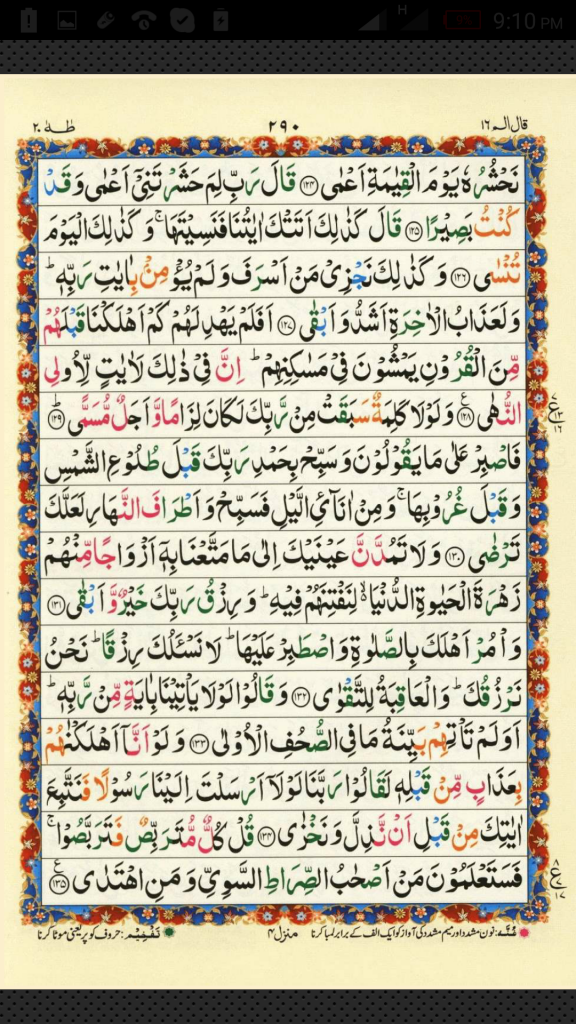 H
9:10 PM
قال الم ١٦
٢٩٠
طٰهٰ ٢٠
نَحْشُرُهٗ يَوْمَ الْقِيٰمَةِ اَعْمٰى ﴿۱۲۴﴾ قَالَ رَبِّ لِمَ حَشَرْتَنِىْٓ اَعْمٰى وَقَدْ
كُنْتُ بَصِيْرًا ﴿۱۲۵﴾ قَالَ كَذٰلِكَ اَتَتْكَ اٰيٰتُنَا فَنَسِيْتَهَا ۚ وَكَذٰلِكَ الْيَوْمَ
تُنْسٰى ﴿۱۲۶﴾ وَكَذٰلِكَ نَجْزِىْ مَنْ اَسْرَفَ وَلَمْ يُؤْمِنْۢ بِاٰيٰتِ رَبِّهٖ ؕ
وَلَعَذَابُ الْاٰخِرَةِ اَشَدُّ وَاَبْقٰى ﴿۱۲۷﴾ اَفَلَمْ يَهْدِ لَهُمْ كَمْ اَهْلَكْنَا قَبْلَهُمْ
مِّنَ الْقُرُوْنِ يَمْشُوْنَ فِىْ مَسٰكِنِهِمْ ؕ اِنَّ فِىْ ذٰلِكَ لَاٰيٰتٍ لِّاُولِى
النُّهٰى ﴿۱۲۸﴾ وَلَوْلَا كَلِمَةٌ سَبَقَتْ مِنْ رَّبِّكَ لَكَانَ لِزَامًا وَّاَجَلٌ مُّسَمًّى ﴿۱۲۹﴾
فَاصْبِرْ عَلٰى مَا يَقُوْلُوْنَ وَسَبِّحْ بِحَمْدِ رَبِّكَ قَبْلَ طُلُوْعِ الشَّمْسِ
وَقَبْلَ غُرُوْبِهَا ۚ وَمِنْ اٰنَآئِ الَّيْلِ فَسَبِّحْ وَاَطْرَافَ النَّهَارِ لَعَلَّكَ
تَرْضٰى ﴿۱۳۰﴾ وَلَا تَمُدَّنَّ عَيْنَيْكَ اِلٰى مَا مَتَّعْنَا بِهٖٓ اَزْوَاجًا مِّنْهُمْ
زَهْرَةَ الْحَيٰوةِ الدُّنْيَا ۙ لِنَفْتِنَهُمْ فِيْهِ ؕ وَرِزْقُ رَبِّكَ خَيْرٌ وَّاَبْقٰى ﴿۱۳۱﴾
وَاْمُرْ اَهْلَكَ بِالصَّلٰوةِ وَاصْطَبِرْ عَلَيْهَا ؕ لَا نَسْـَٔلُكَ رِزْقًا ؕ نَحْنُ
نَرْزُقُكَ ؕ وَالْعَاقِبَةُ لِلتَّقْوٰى ﴿۱۳۲﴾ وَقَالُوْا لَوْلَا يَاْتِيْنَا بِاٰيَةٍ مِّنْ رَّبِّهٖ ؕ
اَوَلَمْ تَاْتِهِمْ بَيِّنَةُ مَا فِى الصُّحُفِ الْاُوْلٰى ﴿۱۳۳﴾ وَلَوْ اَنَّآ اَهْلَكْنٰهُمْ
بِعَذَابٍ مِّنْ قَبْلِهٖ لَقَالُوْا رَبَّنَا لَوْلَآ اَرْسَلْتَ اِلَيْنَا رَسُوْلًا فَنَتَّبِعَ
اٰيٰتِكَ مِنْ قَبْلِ اَنْ نَّذِلَّ وَنَخْزٰى ﴿۱۳۴﴾ قُلْ كُلٌّ مُّتَرَبِّصٌ فَتَرَبَّصُوْا ۚ
فَسَتَعْلَمُوْنَ مَنْ اَصْحٰبُ الصِّرَاطِ السَّوِىِّ وَمَنِ اهْتَدٰى ﴿۱۳۵﴾
غنّہ: نون مشدد اور میم مشدد کی آواز کو ایک الف کے برابر لمبا کرنا
منزل ۴
تفخیم: حروف کو پر یعنی موٹا کرنا